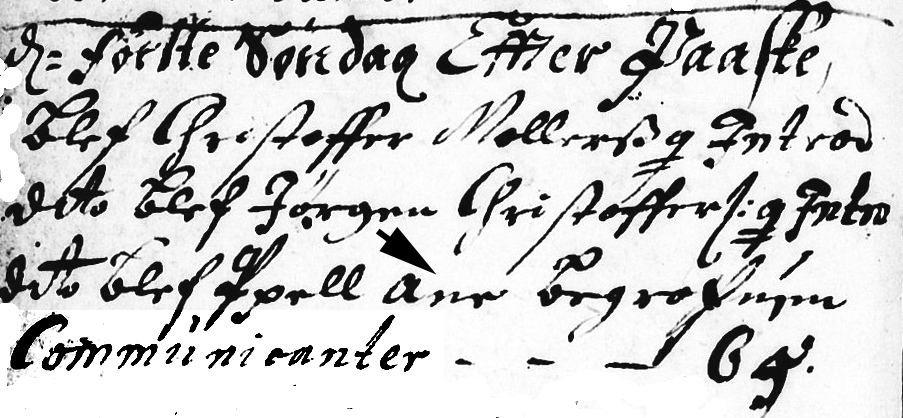 d= Første Søndag Effter Paaske,
Blef Christoffer Mollerß q Introd
dito blef Jørgen Christoffers: q Intro
dito blef Ane begrafuen
Communicanter - - -